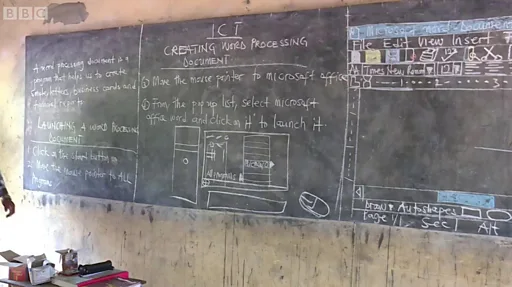 BBC
A word processing document is a
program that helps us to create
cards, letters, business cards and
LAUNCHING A WORD PROCESSING
DOCUMENT
1. Click on the start button
2. Move the mouse pointer to ALL
Programs
ICT
CREATING WORD PROCESSING
DOCUMENT
Move the mouse pointer to microsoft office
From the pop up list, select microsoft
office word and click on it to launch it.
Microsoft word-Document
File Edit View Insert F
Times New Roman 12
Draw Autoshapes
Page 1 Sec